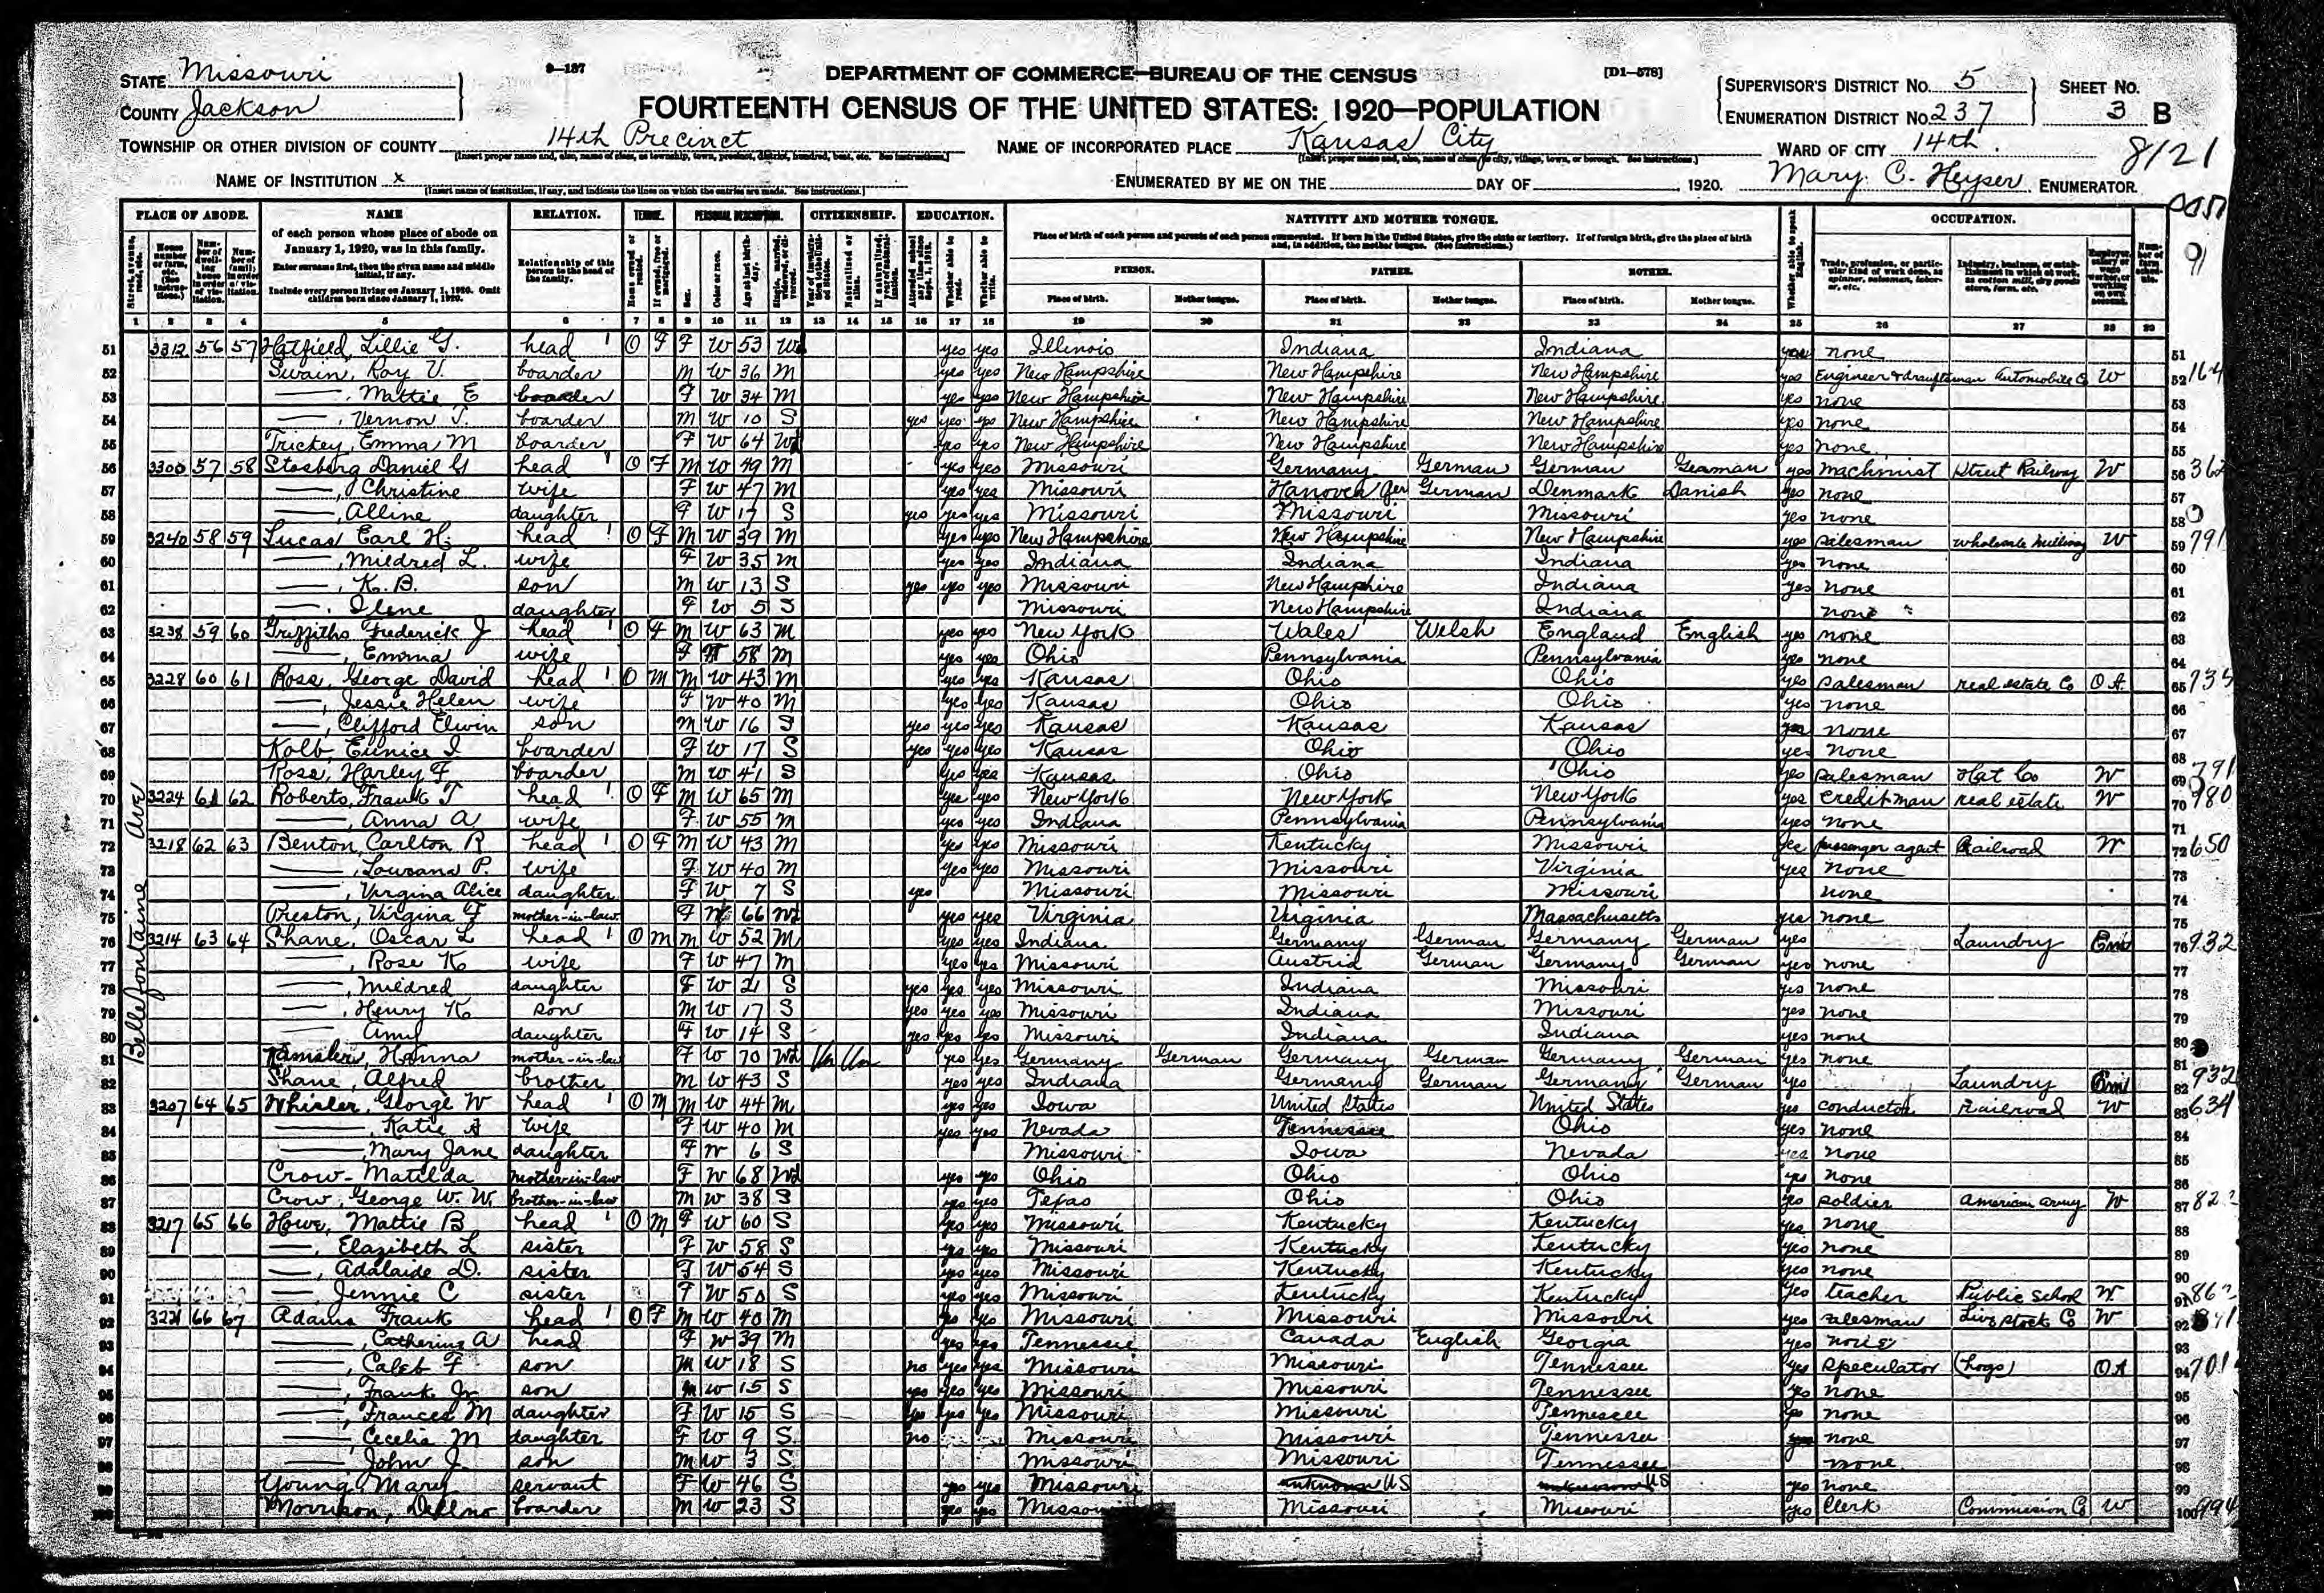 9—137
DEPARTMENT OF COMMERCE—BUREAU OF THE CENSUS
[D1—578]
STATE Missouri
COUNTY Jackson
FOURTEENTH CENSUS OF THE UNITED STATES: 1920—POPULATION
SUPERVISOR'S DISTRICT No. 5
ENUMERATION DISTRICT No. 237
SHEET No. 3 B
TOWNSHIP OR OTHER DIVISION OF COUNTY 14th Precinct
NAME OF INCORPORATED PLACE Kansas City
WARD OF CITY 14th.
8121
NAME OF INSTITUTION x
[Insert name of institution, if any, and indicate the lines on which the entries are made. See instructions.]
ENUMERATED BY ME ON THE DAY OF , 1920. Mary. C. Heyser ENUMERATOR.
PLACE OF ABODE. NAME RELATION. PERSONAL DESCRIPTION. CITIZENSHIP. EDUCATION. NATIVITY AND MOTHER TONGUE. OCCUPATION.
of each person whose place of abode on January 1, 1920, was in this family.
Enter surname first, then the given name and middle initial, if any.
Include every person living on January 1, 1920. Omit children born since January 1, 1920.
Relationship of this person to the head of the family.
PERSON. FATHER. MOTHER.
Place of birth. Mother tongue. Place of birth. Mother tongue. Place of birth. Mother tongue.
1 2 3 4 5 6 7 8 9 10 11 12 13 14 15 16 17 18 19 20 21 22 23 24 25 26 27 28 29
Bellefontaine Ave
51 3312 56 57 Hatfield, Lillie G. head O F F W 53 Wd yes yes Illinois Indiana Indiana yes none 51
52 Swain, Roy V. boarder M W 36 M yes yes New Hampshire New Hampshire New Hampshire yes Engineer & draughtsman Automobile Co W 52 164
53 —, Mattie E boarder F W 34 M yes yes New Hampshire New Hampshire New Hampshire yes none 53
54 —, Vernon T. boarder M W 10 S yes yes yes New Hampshire New Hampshire New Hampshire yes none 54
55 Trickey, Emma M boarder F W 64 Wd yes yes New Hampshire New Hampshire New Hampshire yes none 55
56 3300 57 58 Stosberg Daniel G head O F M W 49 M yes yes Missouri Germany German German German yes machinist Street Railway W 56 362
57 —, Christine wife F W 47 M yes yes Missouri Hanover Ger German Denmark Danish yes none 57
58 —, Alline daughter F W 17 S yes yes yes Missouri Missouri Missouri yes none 58
59 3240 58 59 Lucas Earl H. head O F M W 39 M yes yes New Hampshire New Hampshire New Hampshire yes salesman wholesale W 59 791
60 —, Mildred L. wife F W 35 M yes yes Indiana Indiana Indiana yes none 60
61 —, K. B. son M W 13 S yes yes yes Missouri New Hampshire Indiana yes none 61
62 —, Ilene daughter F W 5 S Missouri New Hampshire Indiana none 62
63 3238 59 60 Griffiths Frederick J head O F M W 63 M yes yes New York Wales Welsh England English yes none 63
64 —, Emma wife F W 58 M yes yes Ohio Pennsylvania Pennsylvania yes none 64
65 3228 60 61 Rose, George David head O M M W 43 M yes yes Kansas Ohio Ohio yes salesman real estate Co OA 65 735
66 —, Jessie Helen wife F W 40 M yes yes Kansas Ohio Ohio yes none 66
67 —, Clifford Elwin son M W 16 S yes yes yes Kansas Kansas Kansas yes none 67
68 Kolb, Eunice I boarder F W 17 S yes yes yes Kansas Ohio Ohio yes none 68
69 Rose, Harley F boarder M W 41 S yes yes Kansas Ohio Ohio yes salesman Hat Co W 69 791
70 3224 61 62 Roberts, Frank T head O F M W 65 M yes yes New York New York New York yes Credit man real estate W 70 980
71 —, Anna A wife F W 55 M yes yes Indiana Pennsylvania Pennsylvania yes none 71
72 3218 62 63 Benton, Carlton R head O F M W 43 M yes yes Missouri Kentucky Missouri yes passenger agent Railroad W 72 650
73 —, Lourana P. wife F W 40 M yes yes Missouri Missouri Virginia yes none 73
74 —, Virgina Alice daughter F W 7 S yes Missouri Missouri Missouri none 74
75 Preston, Virgina F mother-in-law F W 66 Wd yes yes Virginia Virginia Massachusetts yes none 75
76 3214 63 64 Shane, Oscar L head O M M W 52 M yes yes Indiana Germany German Germany German yes Laundry Em 76 932
77 —, Rose K wife F W 47 M yes yes Missouri Austria German Germany German yes none 77
78 —, Mildred daughter F W 21 S yes yes yes Missouri Indiana Missouri yes none 78
79 —, Henry K son M W 17 S yes yes yes Missouri Indiana Missouri yes none 79
80 — Amy daughter F W 14 S yes yes yes Missouri Indiana Indiana yes none 80
81 Hanna mother-in-law F W 70 Wd Un Un yes yes Germany German Germany German Germany German yes none 81
82 Shane, Alfred brother M W 43 S yes yes Indiana Germany German Germany German yes Laundry Em 82 932
83 3207 64 65 Whisler, George W head O M M W 44 M yes yes Iowa United States United States yes conductor Railroad W 83 634
84 —, Katie A wife F W 40 M yes yes Nevada Tennessee Ohio yes none 84
85 —, Mary Jane daughter F W 6 S Missouri Iowa Nevada yes none 85
86 Crow- Matilda mother-in-law F W 68 Wd yes yes Ohio Ohio Ohio yes none 86
87 Crow, George W. W. brother-in-law M W 38 S yes yes Texas Ohio Ohio yes soldier American army W 87 822
88 3217 65 66 Howe, Mattie B head O M F W 60 S yes yes Missouri Kentucky Kentucky yes none 88
89 —, Elazibeth L sister F W 58 S yes yes Missouri Kentucky Kentucky yes none 89
90 —, Adalaide D. sister F W 54 S yes yes Missouri Kentucky Kentucky yes none 90
91 —, Jennie C sister F W 50 S yes yes Missouri Kentucky Kentucky yes teacher Public School W 91 862
92 3221 66 67 Adams Frank head O F M W 40 M yes yes Missouri Missouri Missouri yes salesman Live stock Co W 92
93 —, Catherine A head F W 39 M yes yes Tennessee Canada English Georgia yes none 93
94 —, Caleb F son M W 18 S no yes yes Missouri Missouri Tennessee yes speculator (hogs) OA 94 701
95 —, Frank Jr son M W 15 S yes yes yes Missouri Missouri Tennessee yes none 95
96 —, Frances M daughter F W 15 S yes yes yes Missouri Missouri Tennessee yes none 96
97 —, Cecelia M daughter F W 9 S no Missouri Missouri Tennessee none 97
98 — John J. son M W 3 S Missouri Missouri Tennessee none 98
99 Young Mary servant F W 46 S yes yes Missouri unknown US unknown US yes none 99
Morrison, Dellno boarder M W 23 S yes yes Missouri Missouri Missouri yes Clerk Commission Co W 100 794